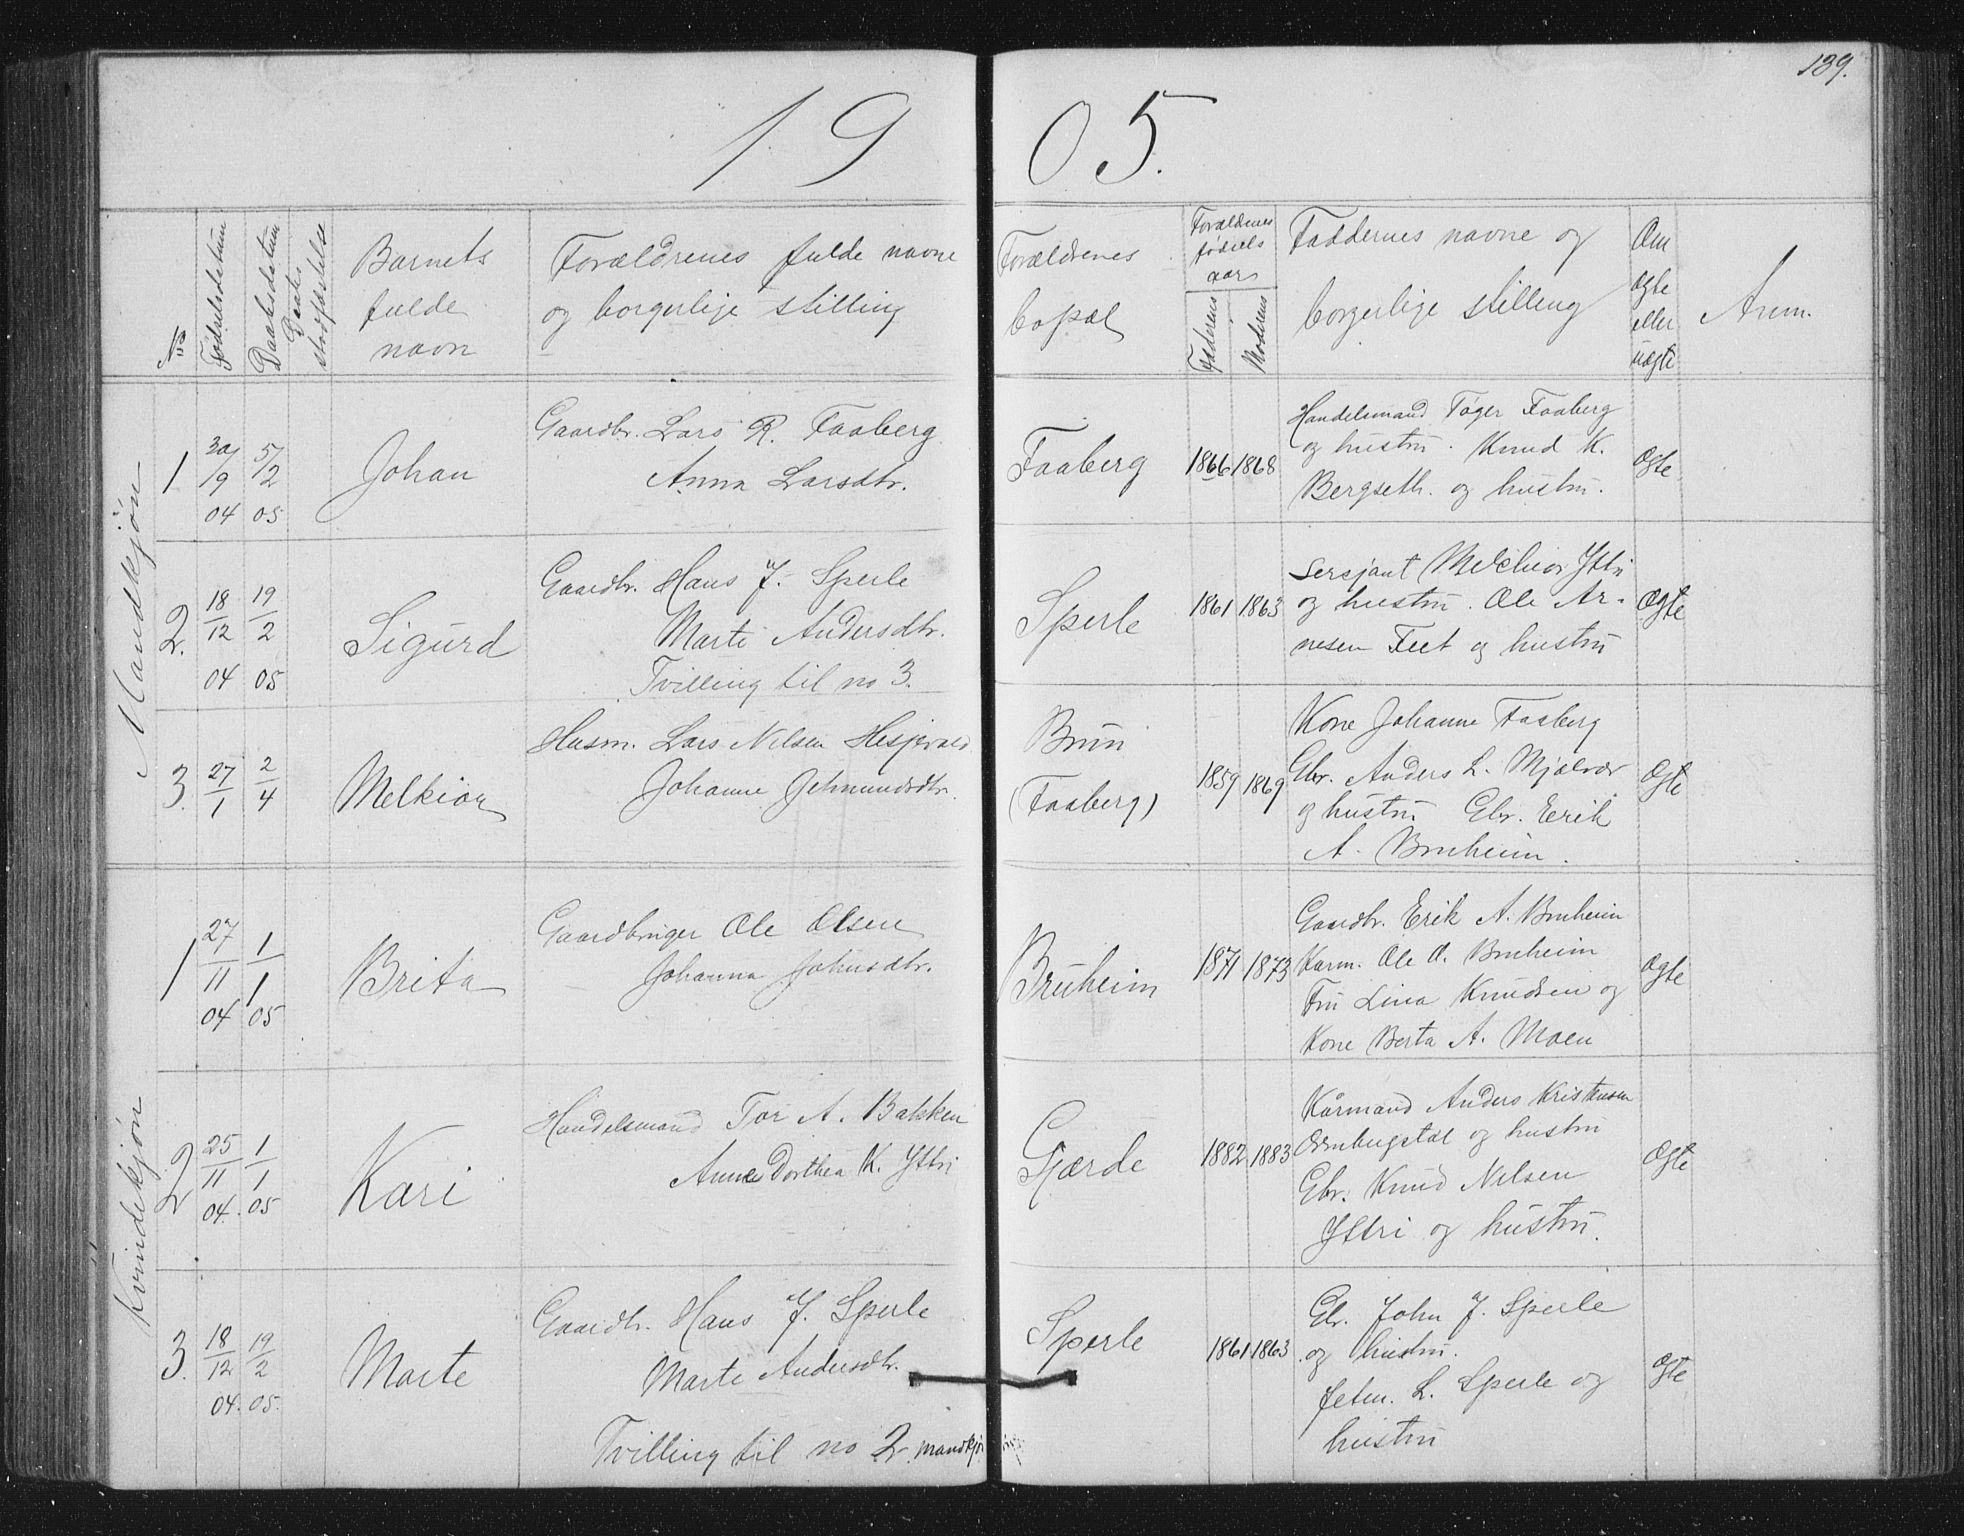 139.
1905.
No
Fødselsdatum
Daabsdatum
Daabs
stadfæstelse
Barnets
fulde
navn
Forældrenes fulde navne
og borgerlige stilling
Forældrenes
bopæl
Forældrenes
fødsels
aar
Faderens
Moderens
Faddernes navne og
borgerlige stilling
Om
ægte
eller
uægte
Anm.
Mandkjøn
1
30/9 04
5/2 05
Johan
Gaardbr. Lars R. Faaberg
Anna Larsdtr.
Faaberg
1866
1868
Handelsmand Tøger Faaberg
og hustru. Knud K.
Bergseth. og hustru.
Ægte
2.
18/12 04
19/2 05
Sigurd
Gaardbr. Hans J. Sperle
Marte Andersdtr.
Tvilling til no 3.
Sperle
1861
1863
Sersjant Melchior Yttri
og hustru. Ole Ar-
nesen Feet og hustru
Ægte
3.
27/1
2/4
Melkior
Husm. Lars Nilsen Hesjevald
Johanne Jetmundsdtr.
Brun
(Faaberg)
1859
1869
Kone Johanne Faaberg
Gbr. Anders L. Mjølvær
og hustru Gbr. Erik
A. Bruheim.
Ægte
Kvindekjøn
1
27/11 04
1/1 05
Brita
Gaardbruger Ole Olsen
Johanna Johnsdtr.
Bruheim
1871
1873
Gaardbr. Erik A. Bruheim
Karm. Ole O. Bruheim
Fru Lina Knudsen og
Kone Berta A. Moen
Ægte
2
25/11 04.
1/1 05
Kari
Handelsmand Tor A. Bakken
Anne Dorthea K. Yttri
Gjærde
1882
1883
Kårmand Anders Kristensen
og hustru
Gbr. Knud Nilsen
Yttri og hustru.
Ægte
3.
18/12 04.
19/2 05.
Marte
Gaardbr. Hans J. Sperle
Marte Andersdtr.
Tvilling til no 2. mandkjø
Sperle
1861
1863
Gbr. John J. Sperle
og hustru.
Jetm. L. Sperle og
hustru
Ægte